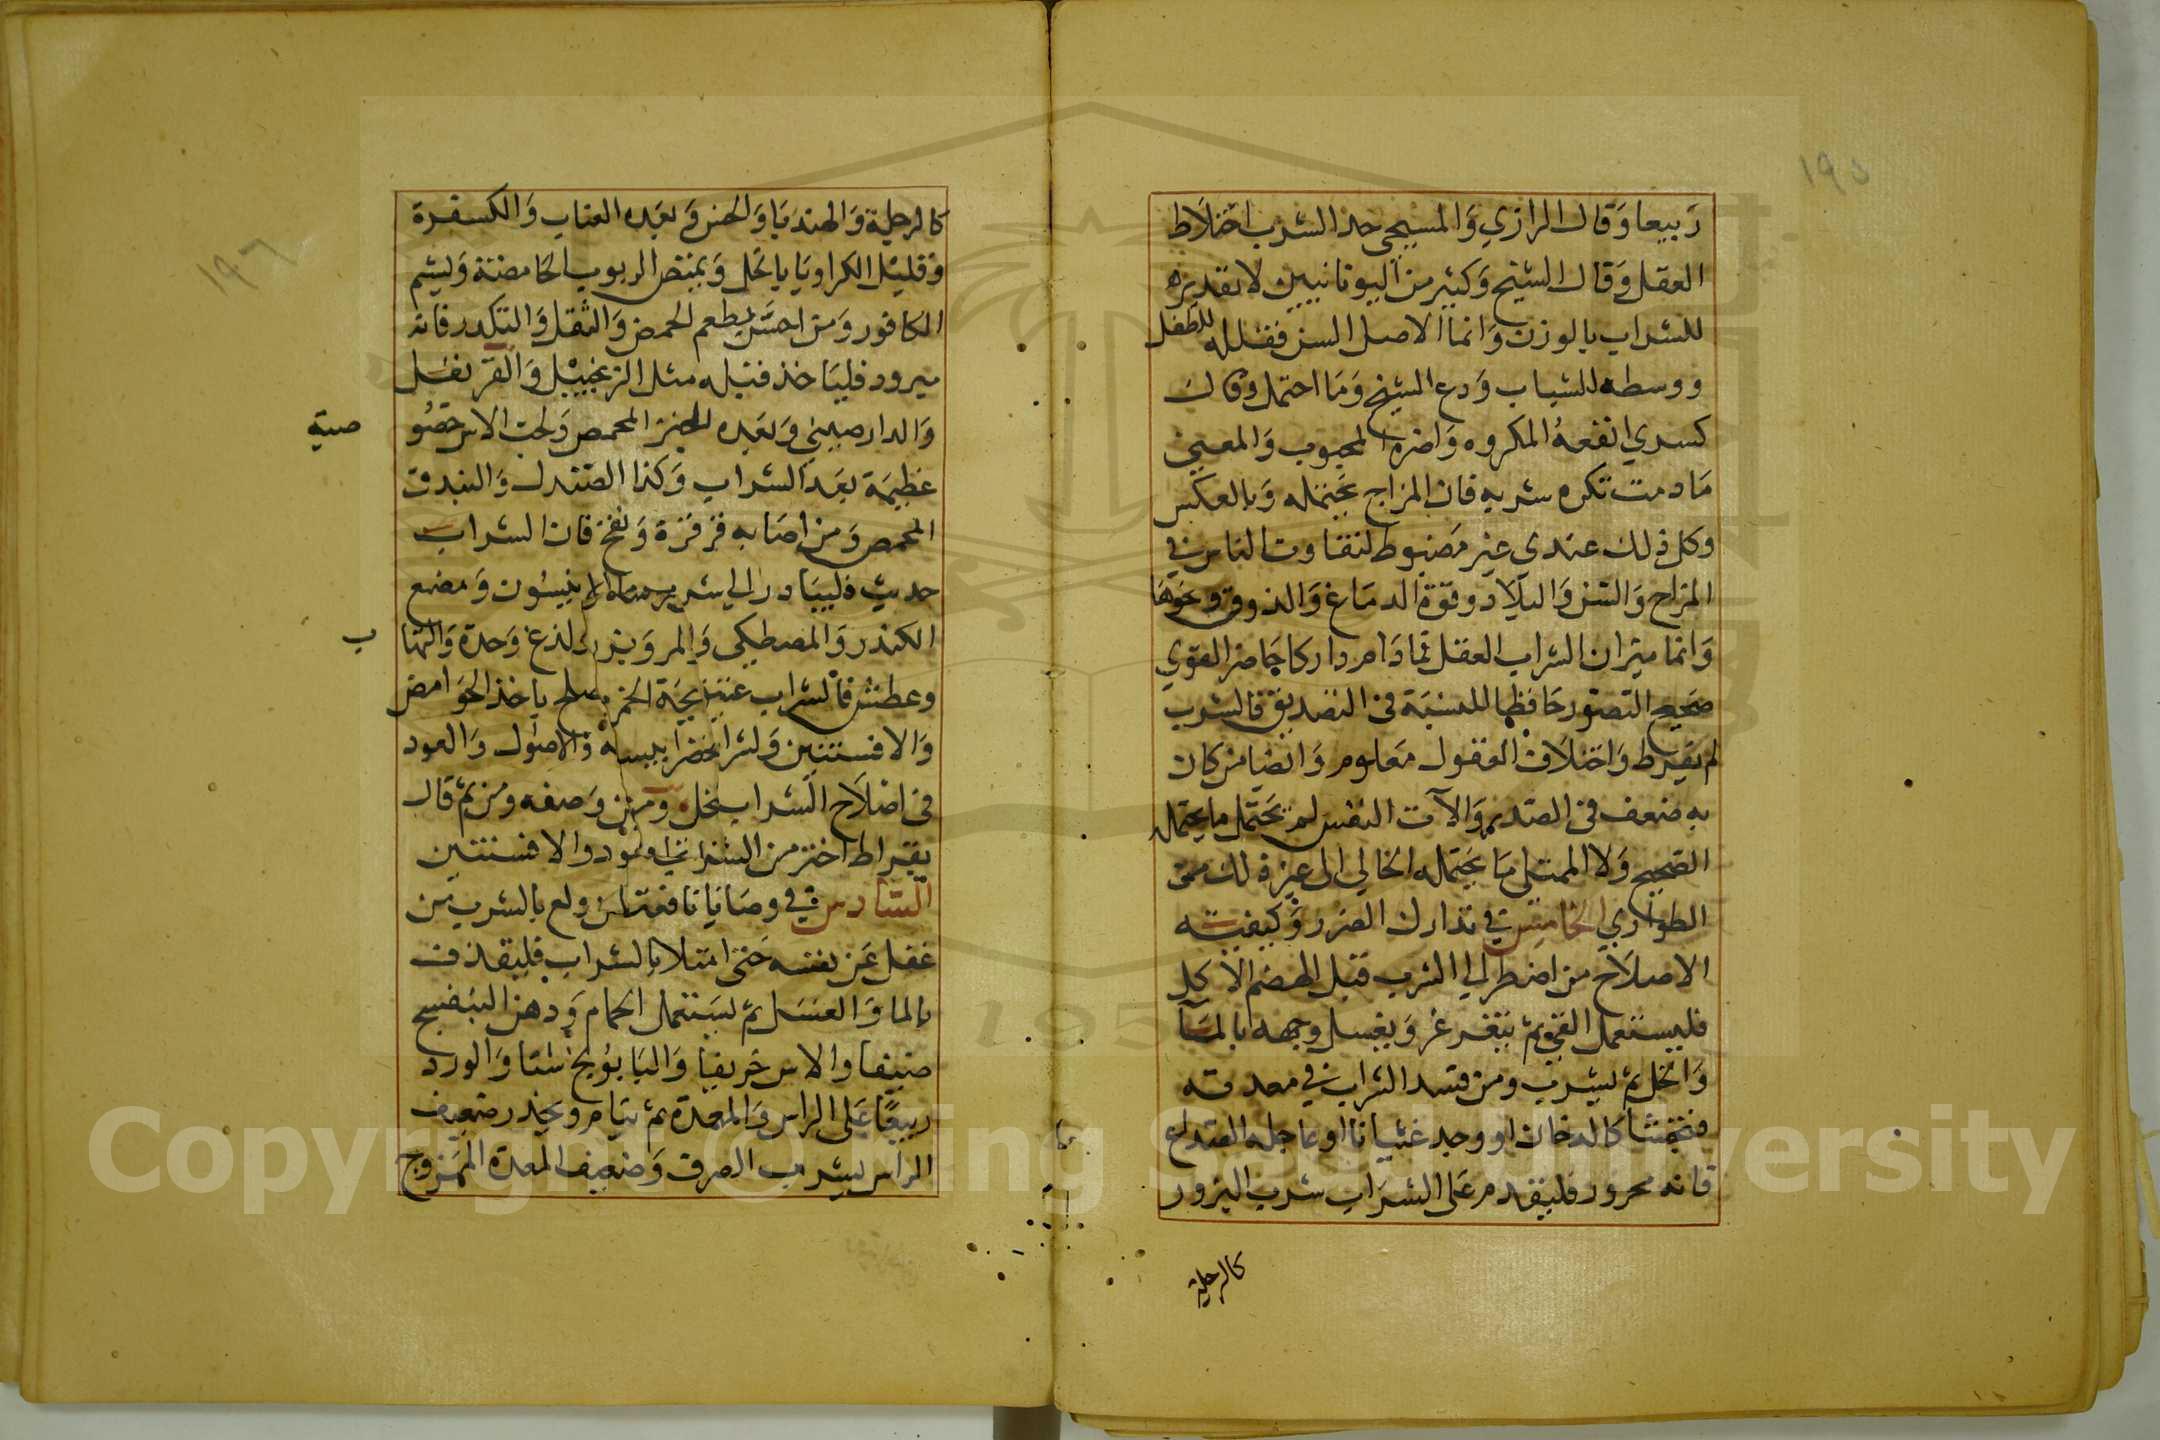 ١٩٥
ربيعا وقال الرازي والمسيحي حد الشرب اختلاط
العقل وقال الشيخ وكثير من اليونانيين لا تقديره
للشراب بالوزن وانما الاصل السن فقلله للطفل
ووسطه للشباب ودع الشيخ وما احتمل وقال
كسري انفعه المكروه واضره المحبوب والمعني
ما دمت تكره شربه فان المزاج يحتمله وبالعكس
وكل ذلك عندي غير مضبوط لتفاوت الناس في
المزاج والسن والبلاد وقوة الدماغ والذوق ونحوها
وانما ميزان الشراب العقل فما دام داركا حاضر القوي
صحيح التصور حافظا للنسبة في التصديق فالشرب
لم يفرط واختلاف العقول معلوم وايضا من كان
به ضعف في الصدر والآت النفس لم يحتمل ما يحتمله
الصحيح ولا الممتلي ما يحتمله الخالي الى غير ذلك من
الطواري الخامس في تدارك الضرر وكيفية
الاصلاح من اضطر الي الشرب قبل الهضم الاكل
فليستعمل القي ثم يتغرغر ويغسل وجهه بالماء
والخل ثم ليشرب ومن فسد الشراب في معدته
فتجشا كالدخان او وجد غثيانا او عاجله الصداع
فانه محرور فليقدم على الشراب شرب البزور
كالرجلة
١٩٦
كالرجلة والهندبا والخس وبعده العناب والكسفرة
وقليل الكراويا بالخل ويمتص الربوب الحامضة وليشم
الكافور ومن احس بطعم الحمض والثقل والتكدر فانه
مبرود فلياخذ قبله مثل الزنجبيل والقرنفل
والدارصيني وبعده الخبز المحمص ولحب الاس خصو
صية
عظيمة بعد الشراب وكذا الصندل والبندق
المحمص ومن اصابه قرقرة ونفخ فان الشراب
حديث فليبادر الي شرب ماء الانيسون ومضغ
الكندر والمصطكي والمر ومن لذع وحدة والتها
ب
وعطش فالشراب عتيق الخمر يصلح ياخذ الحوامض
والافسنتين والاصول والعود
في اصلاح الشراب بخل وصفه ومن ثم قال
بقراط احترز من الشراب بالعود والافسنتين
السادس في وصايا نافعة لمن ولع بالشرب من
غفل عن نفسه حتى امتلا بالشراب فليقذف
بالما والعسل ثم ليستعمل الحمام ودهن البنفسج
صيفا والاس خريفا والبابونج شتا والورد
ربيعا على الراس والمعدة ثم ينام ويحذر ضعيف
الراس ليشرب الصرف وضعيف المعدة الممزوج